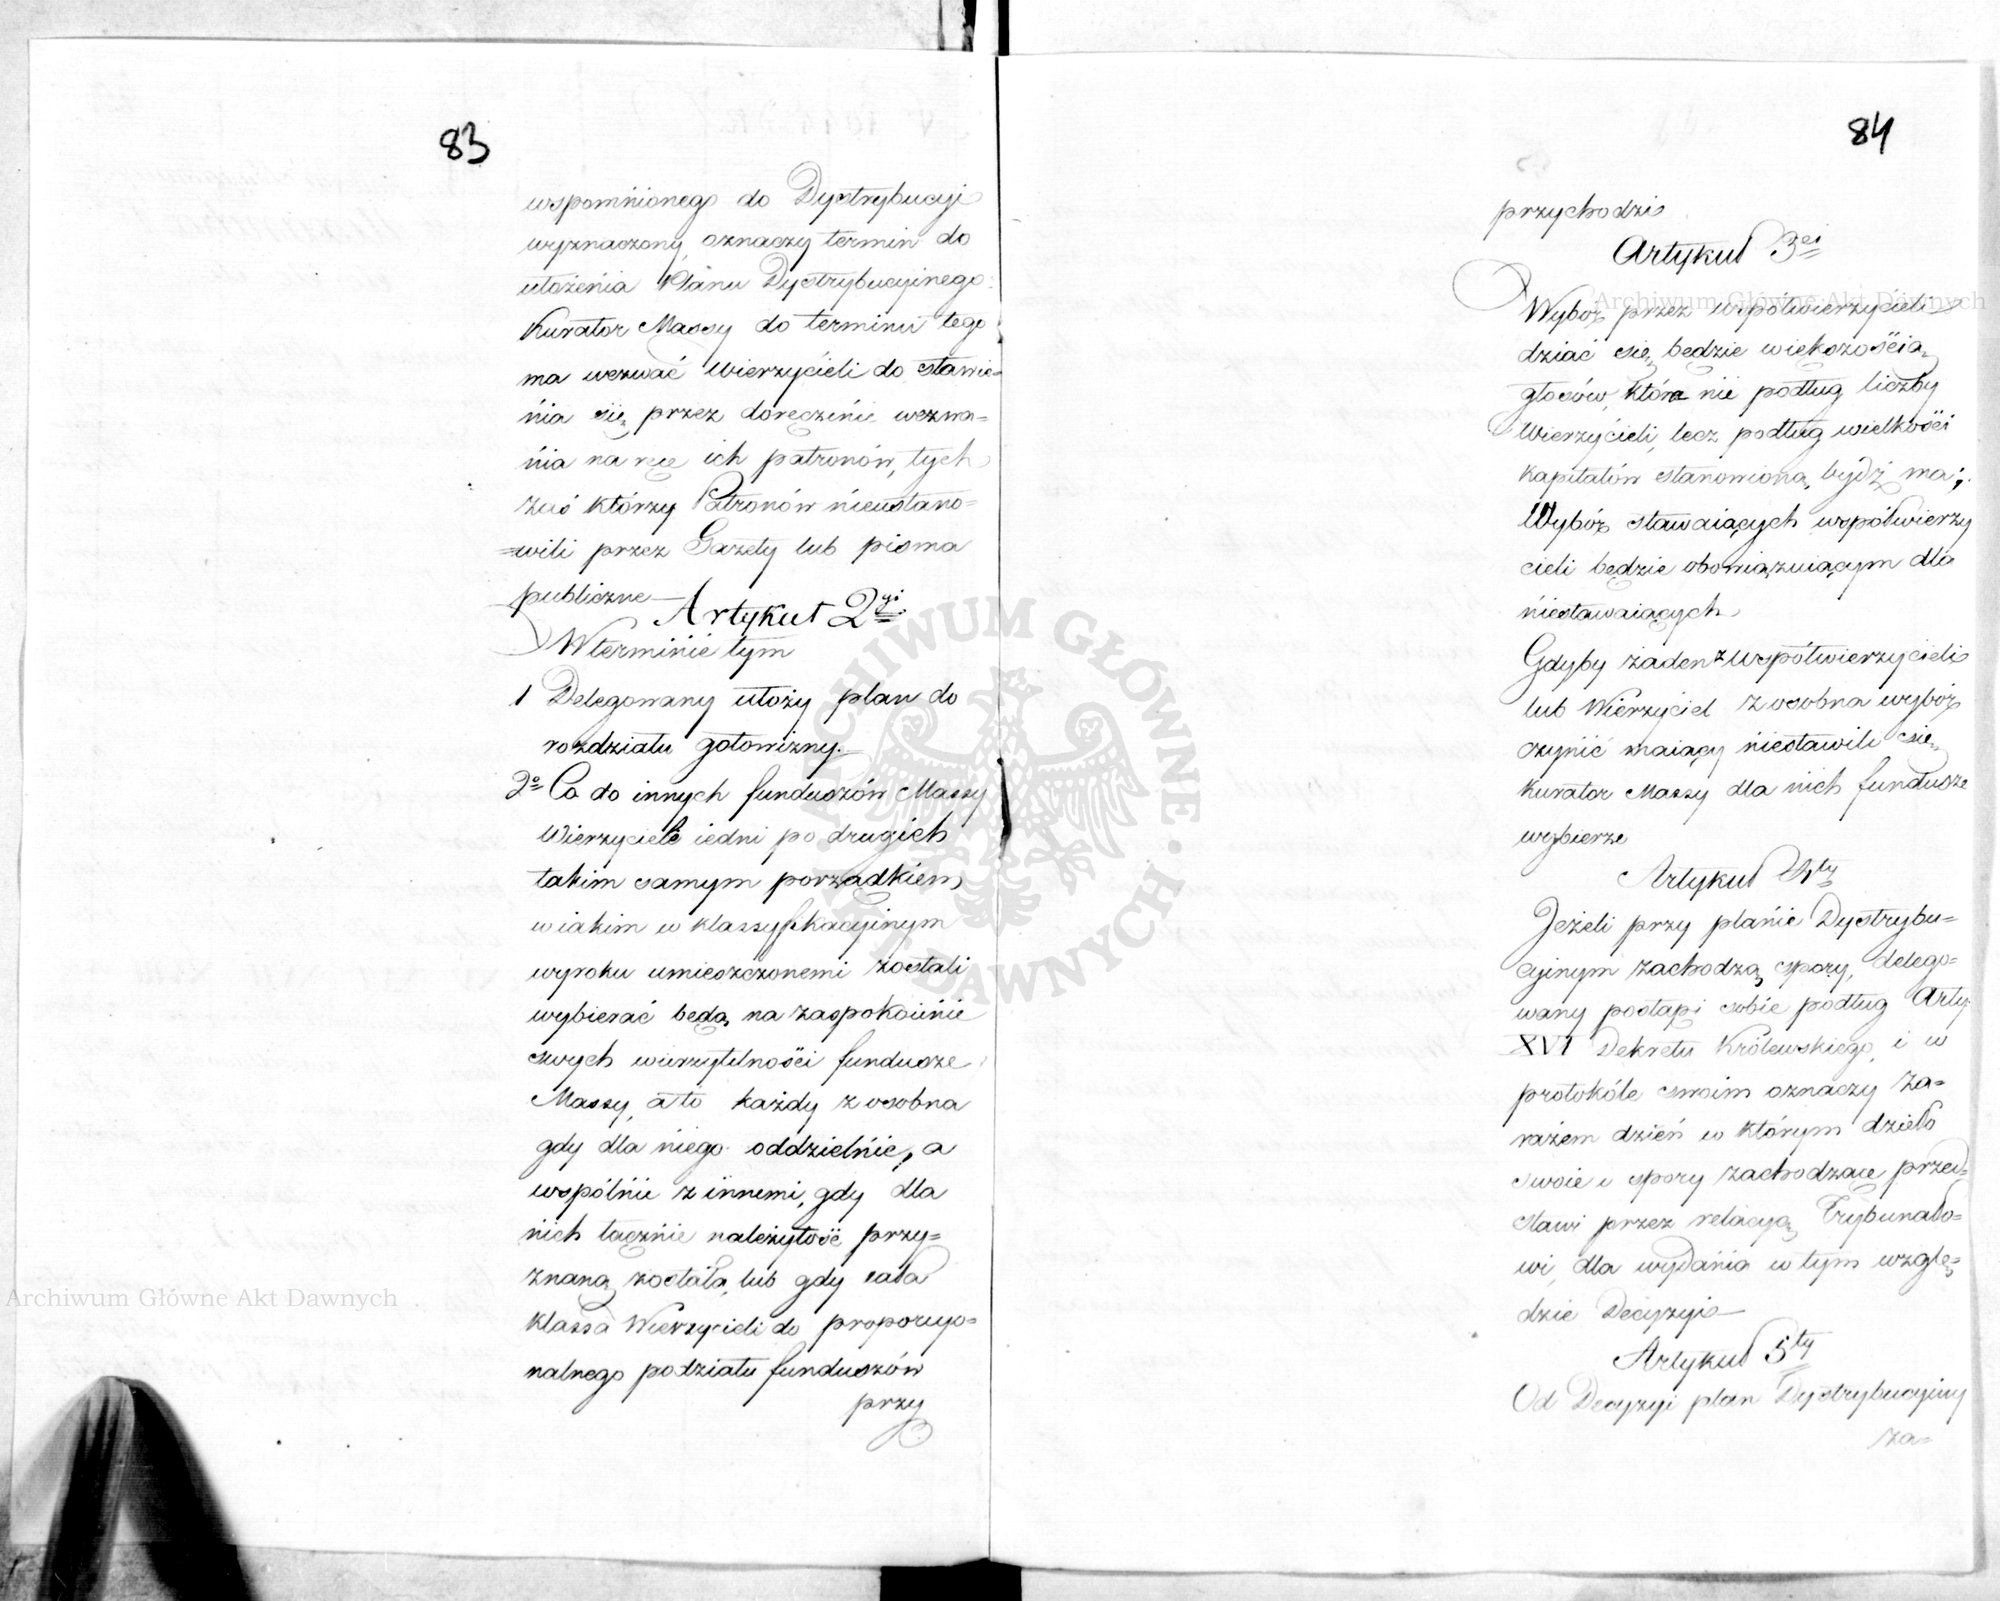 83
wspomnionego do Dystrybucyi
wyznaczony, oznaczy termin do
ułożenia Planu Dystrybucyinego
Kurator Massy do terminu tego
ma wezwać Wierzycieli do stawie-
nia się, przez doręczenie wezwa-
nia na ręce ich patronów, tych
zaś którzy Patronów nieustano=
=wili przez Gazety lub pisma
publiczne —
Artykuł 2gi
W terminie tym
1 Delegowany ułoży plan do
rozdziału gotowizny. —
2o Co do innych funduszów Massy
Wierzyciele iedni po drugich
takim samym porządkiem
w iakim w klassyfikacyinym
wyroku umieszczonemi zostali
wybierać będą, na zaspokoienie
swych wierzytelności fundusze
Massy, a to każdy z osobna
gdy dla niego oddzielnie, a
wspólnie z innemi, gdy dla
nich łącznie należytość przy=
znaną została, lub gdy cała
klassa Wierzycieli do proporcyo=
nalnego podziału funduszów
przy
84
przychodzi
Artykuł 3ci
Wybór przez współwierzycieli
dziać się będzie większością
głosów, która nie podług liczby
Wierzycieli, lecz podług wielkości
kapitałów stanowiona bydź ma;
Wybór stawaiących współwierzy
cieli będzie obowiązuiącym dla
niestawaiących
Gdyby żaden z Współwierzycieli
lub Wierzyciel z osobna wybór
czynić maiący niestawili się,
Kurator Massy dla nich fundusze
wybierze
Artykuł 4ty
Jeżeli przy planie Dystrybu=
cyinym zachodzą spory, delego=
wany postąpi sobie podług Arty
XVI Dekretu Królewskiego, i w
protokóle swoim oznaczy za=
razem dzień w którym dzieło
swoie i spory zachodzące przed=
stawi przez relacyą Trybunało=
wi, dla wydania w tym wzglę=
dzie Decyzyi —
Artykuł 5ty
Od Decyzyi plan Dystrybucyiny
za=
Archiwum Główne Akt Dawnych
Archiwum Główne Akt Dawnych
ARCHIWUM GŁÓWNE · AKT DAWNYCH ·